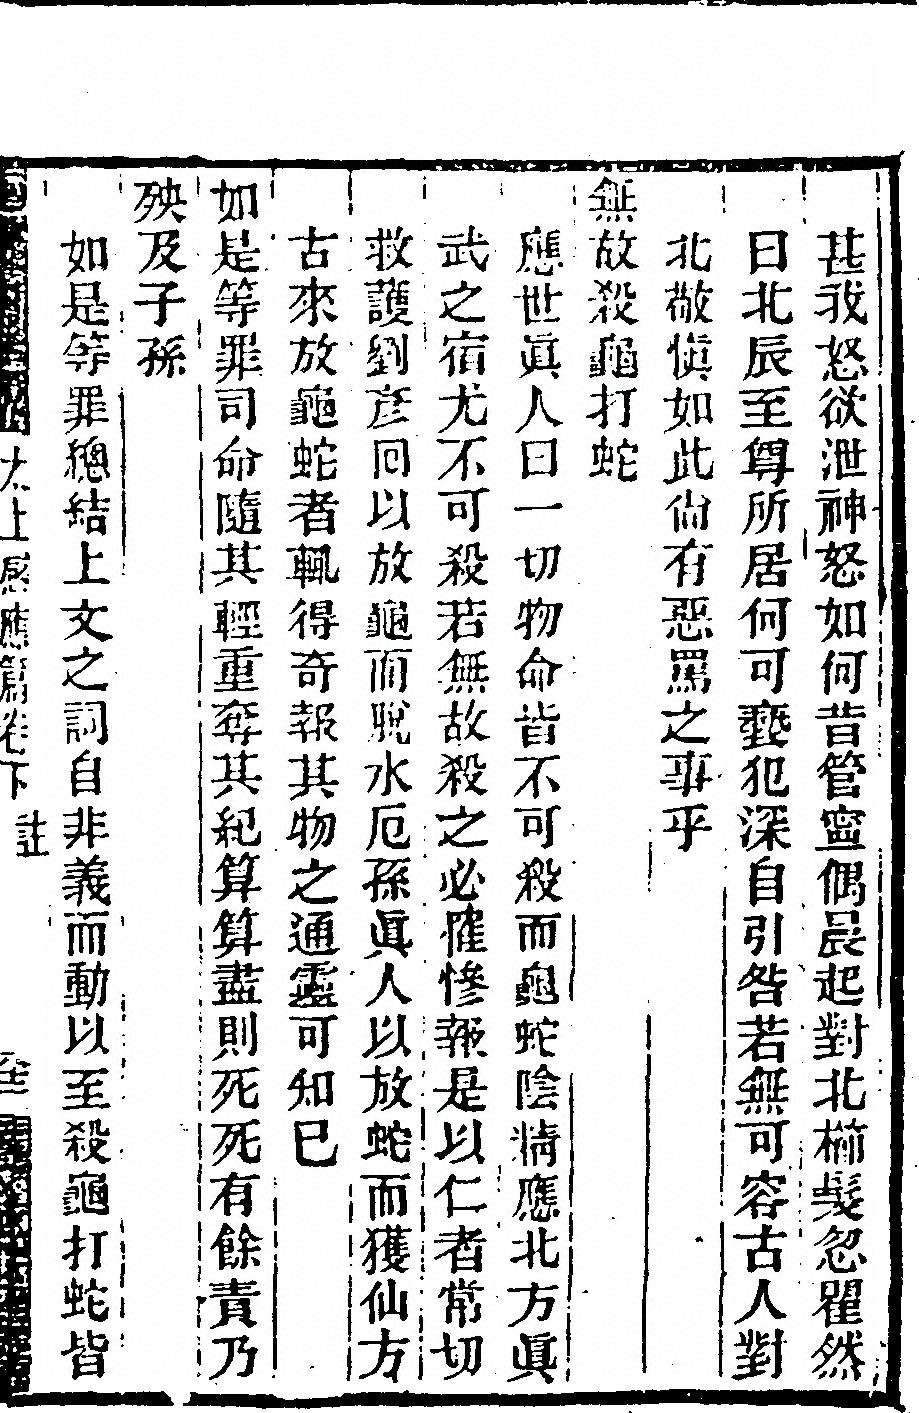 甚我怒欲泄神怒如何昔管寧偶晨起對北櫛髮忽瞿然
曰北辰至尊所居何可褻犯深自引咎若無可容古人對
北敬慎如此尙有惡罵之事乎
無故殺龜打蛇
應世眞人曰一切物命皆不可殺而龜蛇陰精應北方眞
武之宿尤不可殺若無故殺之必罹慘報是以仁者常切
救護劉彦回以放龜而脫水厄孫眞人以放蛇而獲仙方
古來放龜蛇者輒得奇報其物之通靈可知已
如是等罪司命隨其輕重奪其紀算算盡則死死有餘責乃
殃及子孫
如是等罪總結上文之詞自非義而動以至殺龜打蛇皆
太上感應篇卷下 註